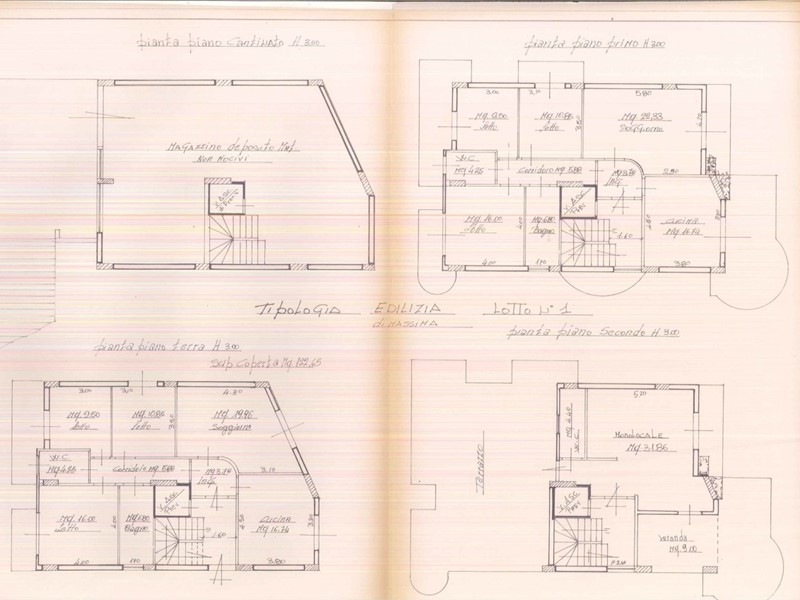 pianta piano Cantinato H 300
MAGAZZINO dEPOSITO Mat.
NON NOCIVI
V. ASC
pianta piano primo H 300
3.00
5.80
Mq. 9.50
letto
Mq. 10.86
letto
3.50
Mq. 28.33
Soggiorno
W.C
Mq 4.25
Corridoio Mq 5.88
Ing.
2.50
V. ASC
Mq. 16.00
letto
4.00
Mq 6.80
Bagno
1.60
CUCINA
Mq. 16.74
4.00
1.70
3.80
TIPOLOGIA EDILIZIA LOTTO N° 1
di MASSIMA
pianta piano terra H 300
Sup. Coperta Mq. 122.65
3.00
4.30
Mq. 9.50
letto
Mq. 10.86
letto
3.50
Mq. 19.96
Soggiorno
W.C
Mq 4.25
Corridoio Mq 5.88
Ing.
3.10
V. ASC
Mq. 16.00
letto
4.00
Mq 6.80
Bagno
1.60
CUCINA
Mq. 16.74
4.00
1.70
3.80
pianta piano Secondo H 300
5.20
Mq 4.40
W.C
MONOLOCALE
Mq 31.86
Terrazzo
V. ASC
Veranda
Mq 9.00